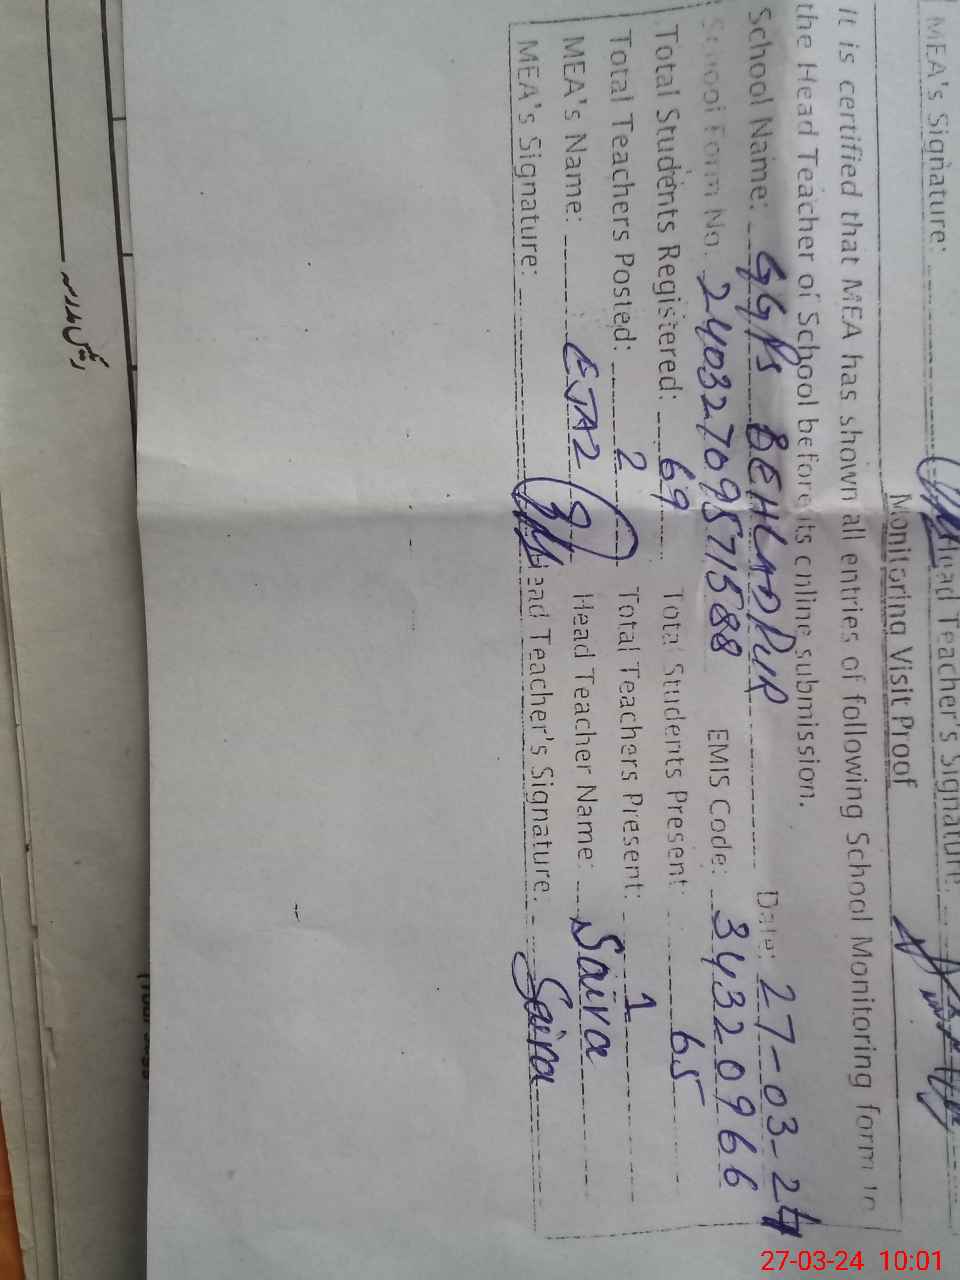 MEA's Signature: Head Teacher's Signature:
Monitoring Visit Proof
It is certified that MEA has shown all entries of following School Monitoring form to
the Head Teacher of School before its online submission.
School Name: GGPS BEHLADPUR Date: 27-03-24
School Form No. 24032709571588 EMIS Code: 34320966
Total Students Registered: 69 Total Students Present: 65
Total Teachers Posted: 2 Total Teachers Present: 1
MEA's Name: EJAZ Head Teacher Name: Saira
MEA's Signature: Head Teacher's Signature: Saira
27-03-24 10:01